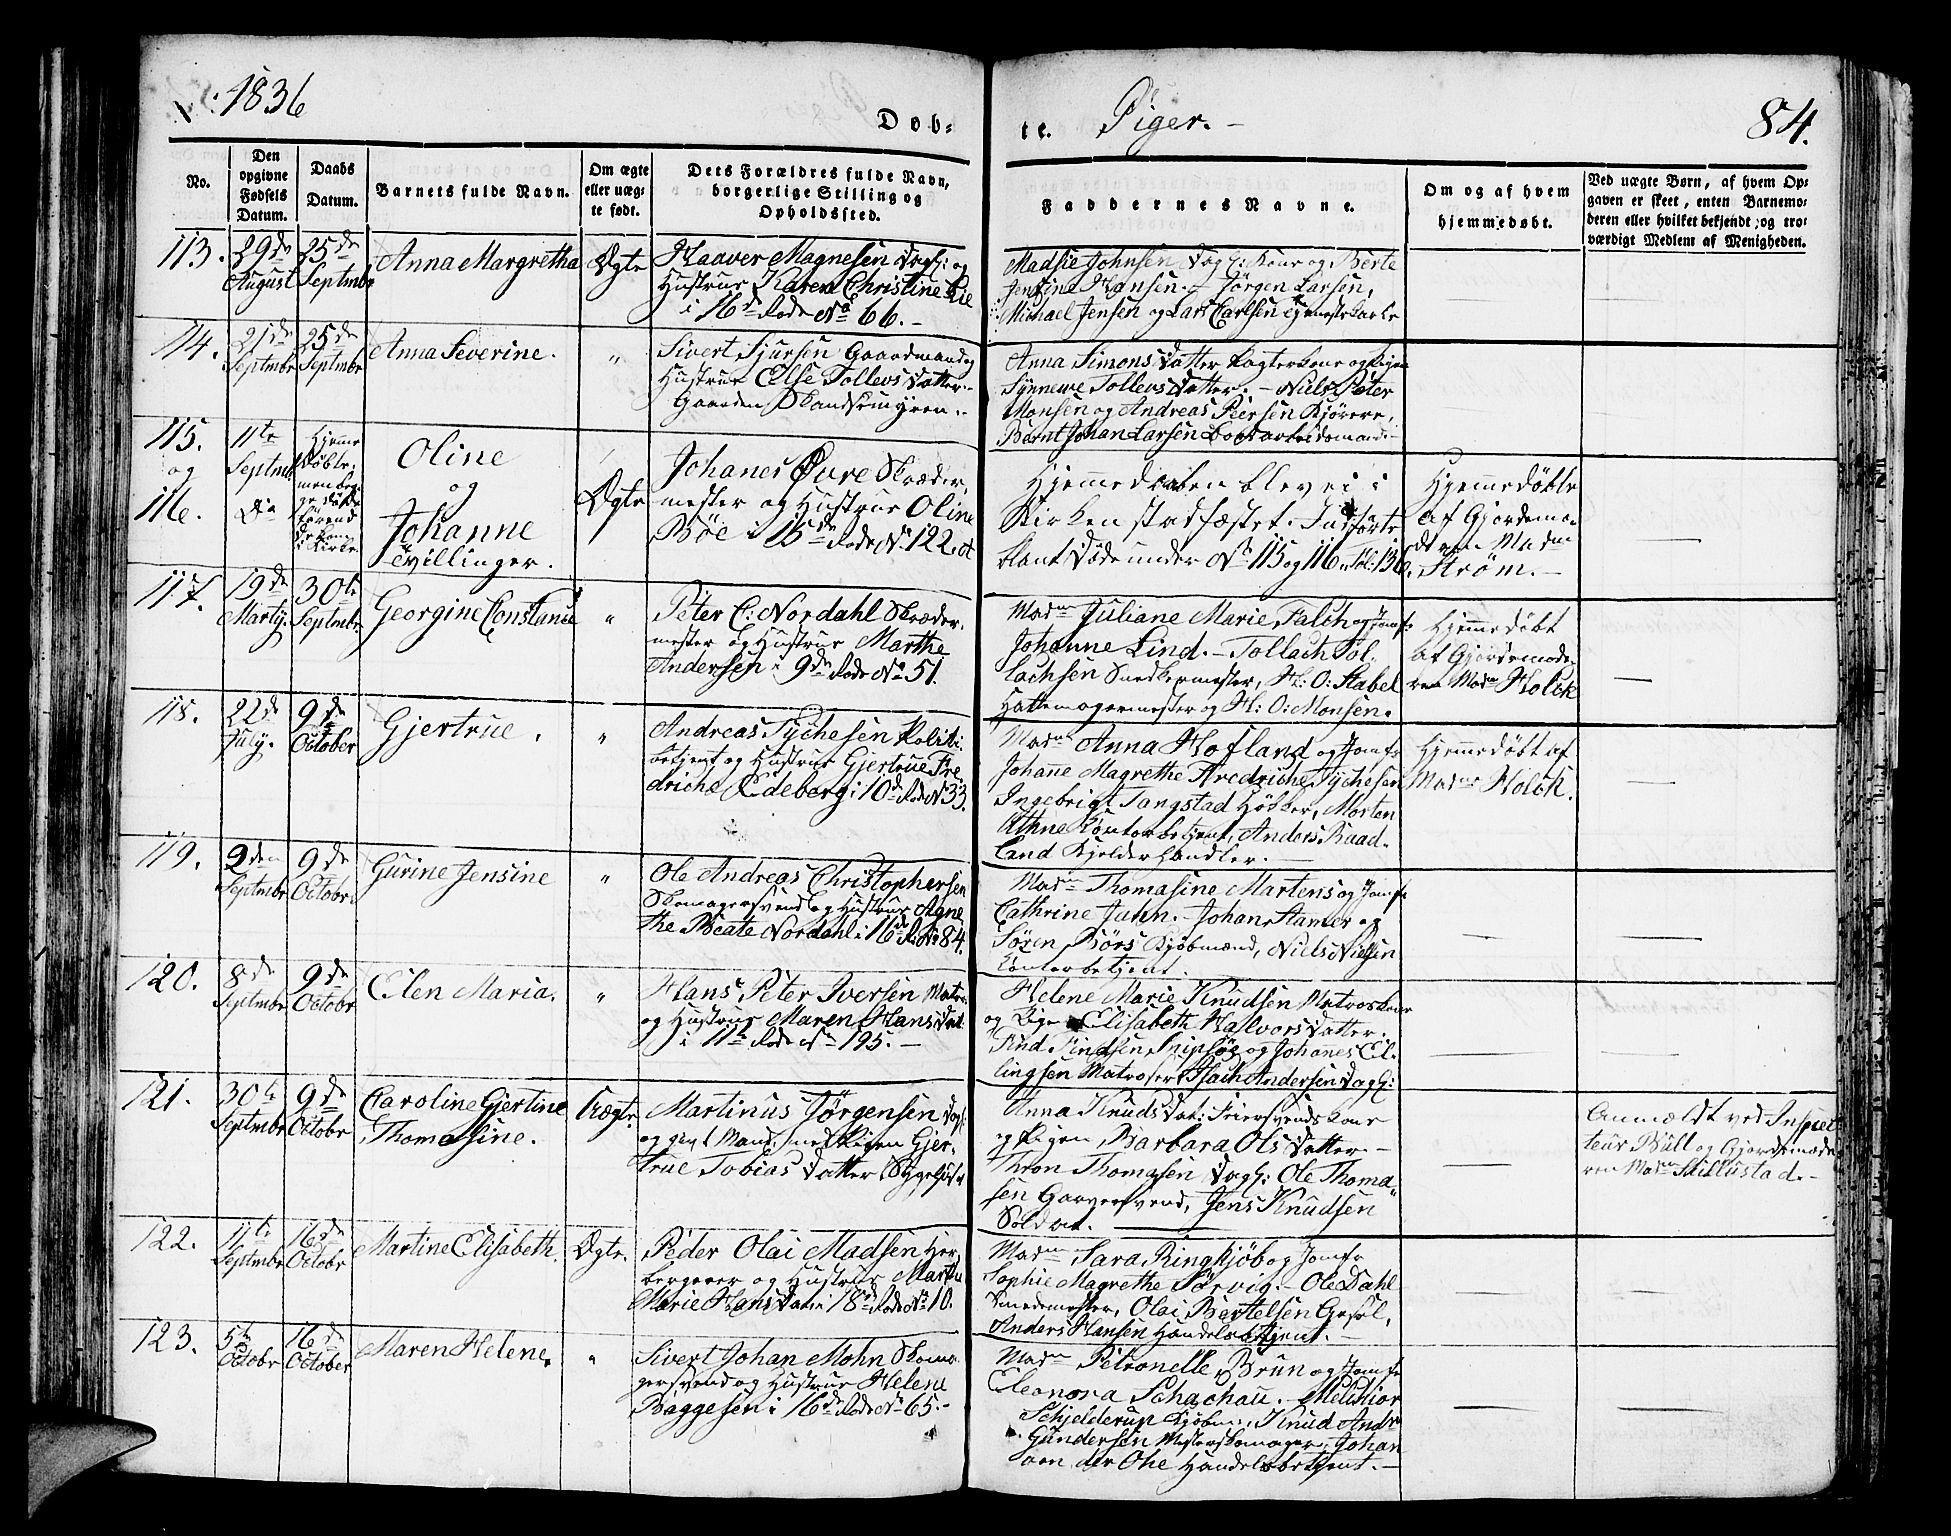 1836
Døb-
te. Piger.-
84.
No.
Den opgivne Fødsels Datum.
Daabs Datum.
Barnets fulde Navn.
Om ægte eller uægte født.
Dets Forældres fulde Navn, borgerlige Stilling og Opholdssted.
Faddernes Navne.
Om og af hvem hjemmedøbt.
Ved uægte Børn, af hvem Opgaven er skeet, enten Barnemoderen eller hvilket bekjendt, og troværdigt Medlem af Menigheden.
113. 29de August 25de Septmbr Anna Margretha Ægte
Haaver Magnesen Dagl: og
Hustrue Karen Christine Lie
i 16de Rode No 66.-
Madsie Johnsen Dagl: Kone og Berte
Jensine Hansen.- Jörgen Larsen,
Michael Jensen og Lars Carlsen tjenestekarle
114. 21de Septmbr 25de Septmbr Anna Severine. "
Sivert Sjursen Gaardmand og
Hustrue Else Tollevsdatter
Gaarden Skandsemyren.-
Anna Simonsdatter Vægterkone og Pigen
Synneve Tollevsdatter.- Niels Peter
Monsen og Andreas Peersen Kjörere,
Berent Johan Larsen Bordarbeidsmand-
115. og 116. 11te Septmbr Do
Hjemmedøbte
Oline
og
Johanne
Tvillinger.
Ægte
Johanes Øvre Skræder-
mester og Hustrue Oline
Böe i 15de Rode No 122.
Hjemmedaaben blev ei i
Kirken stadfæstet. Indførte
blant Døde under No 115 og 116. Fol: 136.
Hjemmedøbte
af Gjordemo-
deren Madm
Strøm.-
117. 19de Martij. 30te Septmbr. Georgine Constance "
Peter C: Nordahl Skræder-
mester og Hustrue Marthe
Andersen i 9de Rode No 51.
Madm Juliane Marie Falch og Jomfr
Johanne Lind.- Tollach Tol-
lachsen Snedkermester, H: O: Stabel
Hattemagermester og H: O: Monsen.
Hjemmedøbt
af Gjordemode-
ren Madm Holck
118. 22de July. 9de October Gjertrue. "
Andreas Tychesen Politi-
betjent og Hustrue Gjertrue Fre-
driche Edeberg i 10de Rode No 33.
Madm Anna Hofland og Jomfr
Johanne Magrethe Fredriche Tychesen
Ingebrigt Tangstad Høker, Morten
Athne Contorbetjent, Anders Raad-
land Kjelderhandler.-
Hjemmedøbt af
Madm Holck.
119. 2den Septmbr 9de Octobr. Gurine Jensine "
Ole Andreas Christophersen
Skomagersvend og Hustrue Agne-
the Beate Nordahl i 16de R. No 84.
Madm Thomasine Martens og Jomfr
Cathrine Juhn.- Johan Stamer og
Sören Börs Kjöbmænd, Niels Nielsen
Contorbetjent.
120. 8de Septmbr 9de Octobr Elen Maria. "
Hans Peter Iversen Matros
og Hustrue Maren Hansdat:
i 11te Rode No 195.-
Helene Marie Knudsen Matroskone
og Pige Elisabeth Halvorsdatter.
Knud Knudsen Snipsöer og Johanes El-
lingsen Matroser, Isach Andersen Dagl:
121. 30te Septmbr 9de Octobr Caroline Gjertine
Thomasine. Uægte.
Martinus Jörgensen Dagl:
og gift Mand, med Pigen Gjer-
true Tobiasdatter Sygehuset
Anna Knudsdat: Feiersvends Kone
og Pigen Barbara Olsdatter.-
Thron Thomasen Dagl: Ole Thoma-
sen Garversvend, Jens Knudsen
Soldat.
Anmældt ved Inspec-
teur Bull og Gjordemode-
ren Madm Skillustad.-
122. 11te Septmbr 16de Octobr Martine Elisabeth. Ægte.
Peder Olai Madsen Her-
bergerer og Hustrue Martha
Marie Hansdat: i 18de Rode No 10.
Madm Sara Ringkjöb og Jomfr
Sophie Magrethe Sörvig.- Ole Dahl
Smedemester, Olai Bertelsen Gesel,
Anders Hansen Handelsbetjent.-
123. 5te Octobr 16de October Maren Helene. "
Sivert Johan Mohn Skoma-
gersvend og Hustrue Helene
Baggesen i 16de Rode No 65.-
Madm Petronelle Brun og Jomfr
Eleonora Schachau. Melchior
Schjelderup Kjöbm:, Knud Andr:
Gundersen Mesterskomager, Johan
von der Ohe Handelsbetjent.-